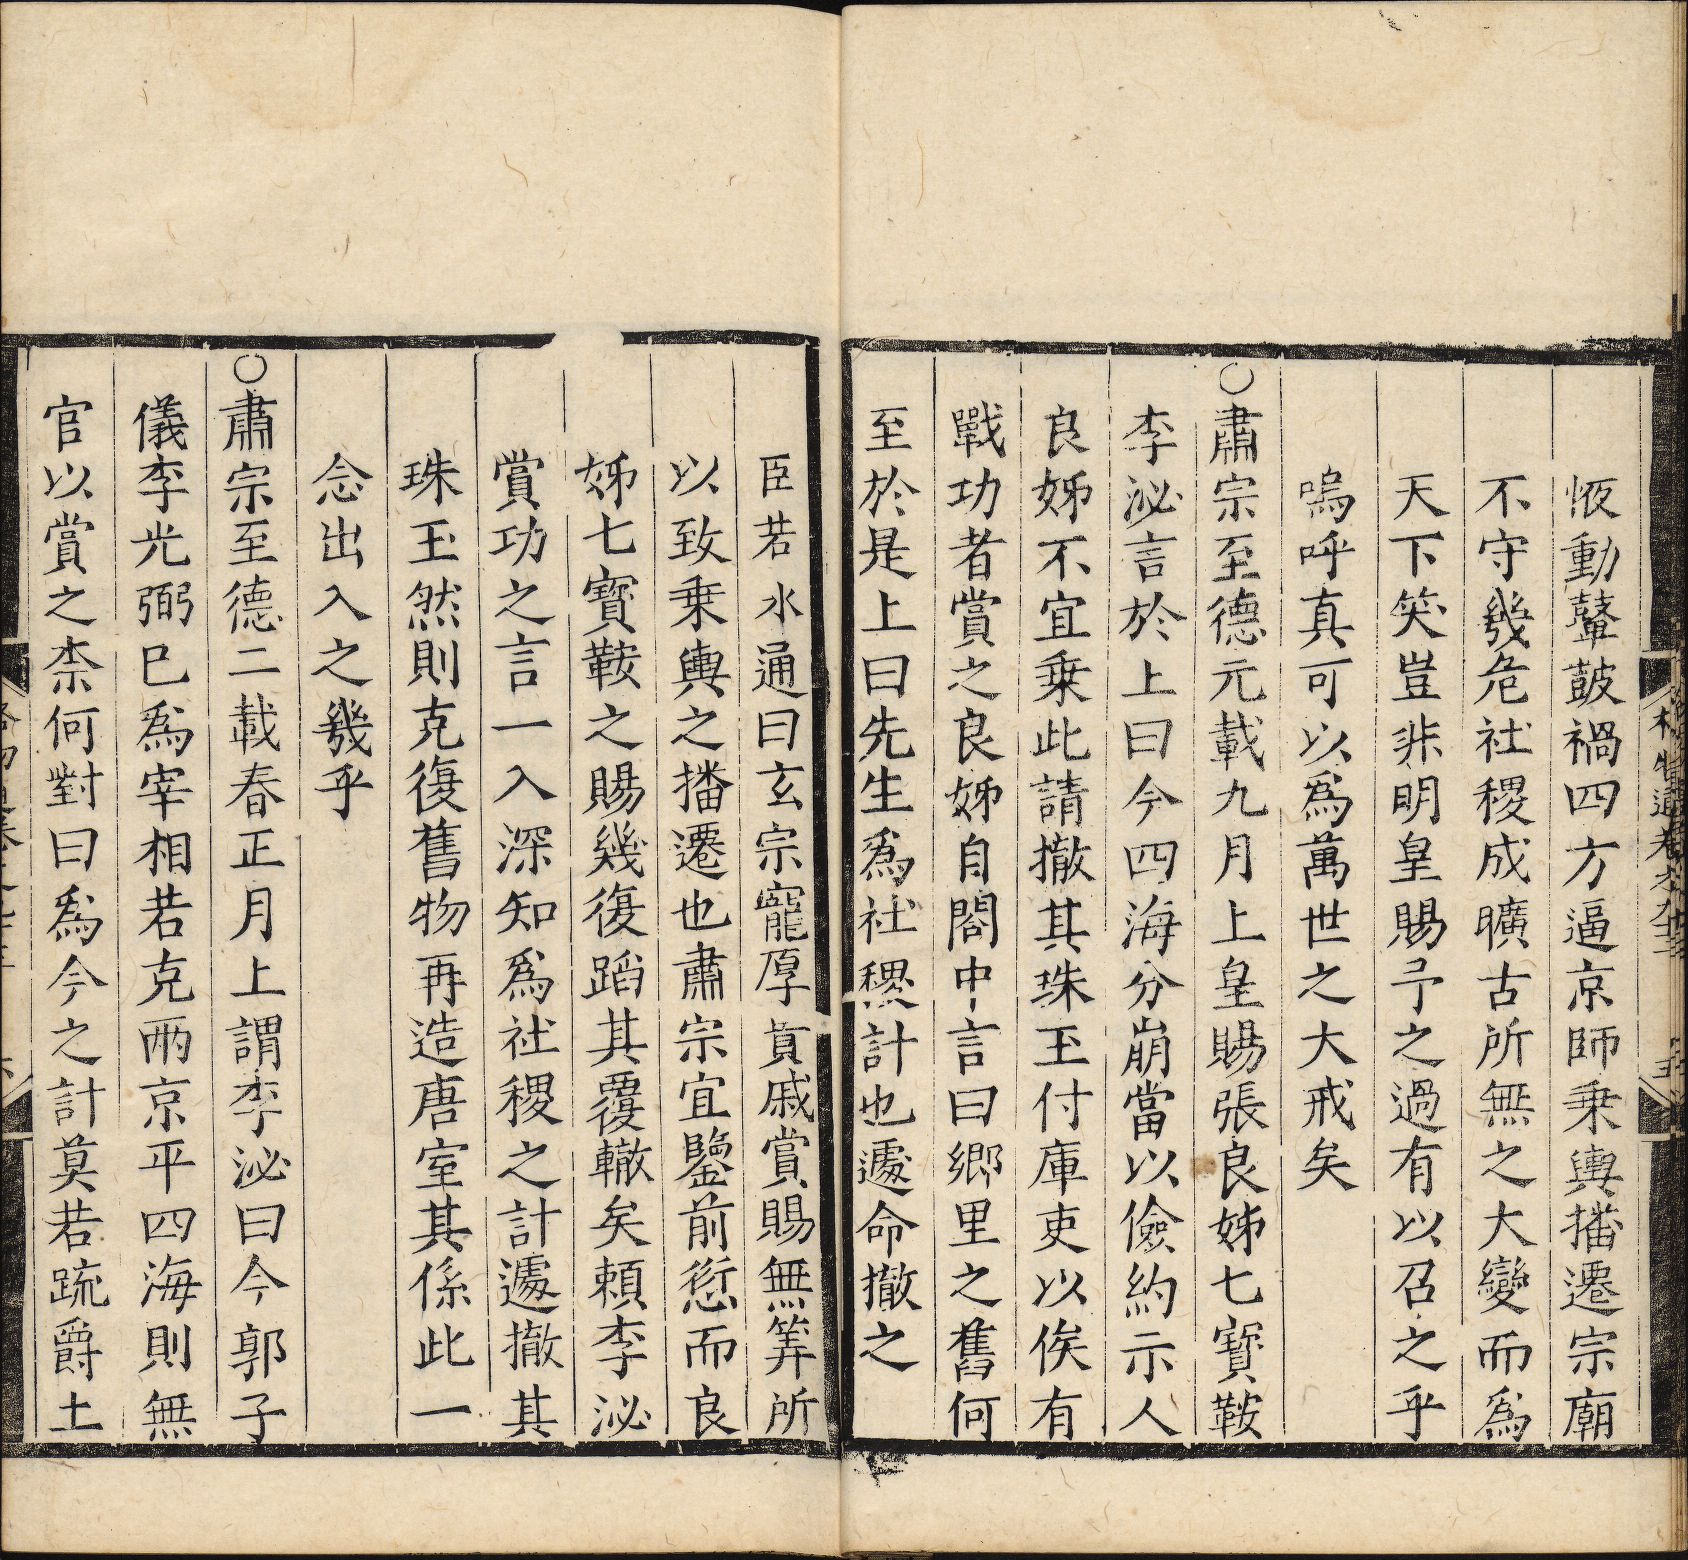 恢動鼙鼓禍四方逼京師乗輿播遷宗廟
不守幾危社稷成曠古所無之大變而爲
天下笑豈非明皇賜予之過有以召之乎
嗚呼真可以爲萬世之大戒矣
○肅宗至德元載九月上皇賜張良娣七寳鞍
李泌言於上曰今四海分崩當以儉約示人
良娣不宜乗此請撤其珠玉付庫吏以俟有
戰功者賞之良娣自閤中言曰鄉里之舊何
至於是上曰先生爲社稷計也遽命撤之
臣若水通曰玄宗寵厚貴戚賞賜無筭所
以致乗輿之播遷也肅宗宜鑒前愆而良
娣七寳鞍之賜幾復蹈其覆轍矣頼李泌
賞功之言一入深知爲社稷之計遽撤其
珠玉然則克復舊物再造唐室其係此一
念出入之幾乎
○肅宗至德二載春正月上謂李泌曰今郭子
儀李光弼已爲宰相若克兩京平四海則無
官以賞之柰何對曰爲今之計莫若疏爵土